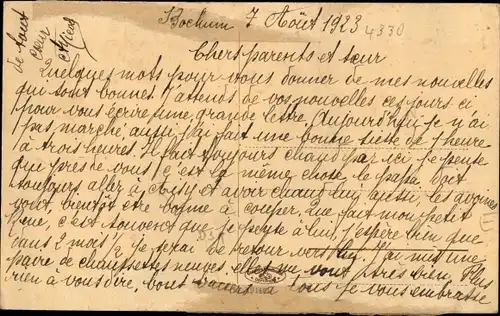 Bochum 7 Août 1923
4330
Chers parents et sœur
Quelques mots pour vous donner de mes nouvelles
qui sont bonnes. J'attends de vos nouvelles ces jours ci
pour vous écrire une grande lettre. Aujourd'hui je n'ai
pas marché, aussi j'ai fait une bonne sieste de 1 heure
à trois heures. Il fait toujours chaud par ici je pense
que près de vous c'est la même chose, le papa doit
toujours aller à et avoir chaud lui aussi, les avoines
vont bientôt être bonne à couper. Que fait mon petit
c'est souvent que je pense à lui. J'espère bien que
dans 2 mois ½ je serai de retour vers lui. J'ai mis une
paire de chaussettes neuves, elles me vont très bien. Plus
rien à vous dire, bons baisers à tous je vous embrasse
de tout
cœur